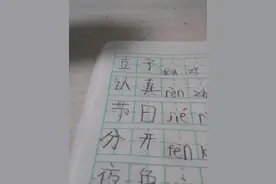 豆子 dòu zǐ
认真 rèn zh
节日 jié r
分开 fēn k
夜色